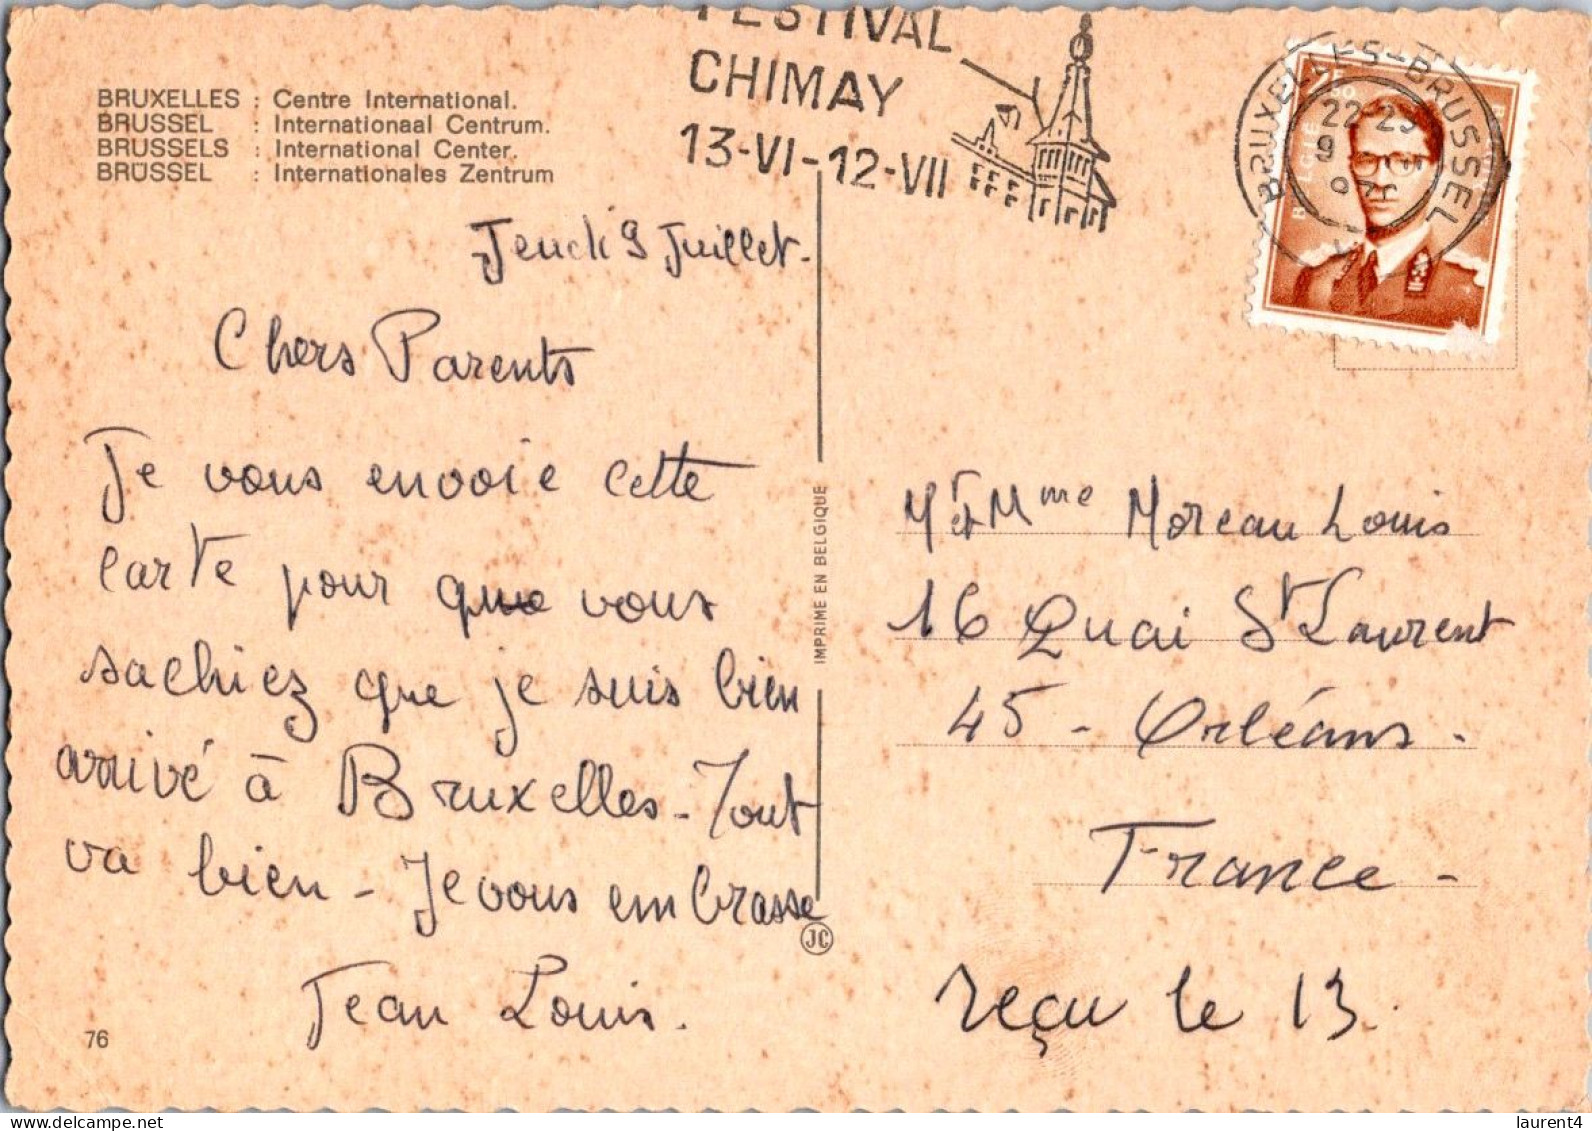 FESTIVAL
CHIMAY
13-VI-12-VII
BRUXELLES-BRUSSEL
22-23
9
2F50
BELGIE
BRUXELLES : Centre International.
BRUSSEL : Internationaal Centrum.
BRUSSELS : International Center.
BRÜSSEL : Internationales Zentrum
Jeudi 9 Juillet.
Chers Parents
Je vous envoie cette
carte pour que vous
sachiez que je suis bien
arrivé à Bruxelles - Tout
va bien - Je vous embrasse
Jean Louis.
76
IMPRIME EN BELGIQUE
JC
Mr et Mme Moreau Louis
16 Quai St Laurent
45 - Orléans -
France -
reçu le 13.
laurent4